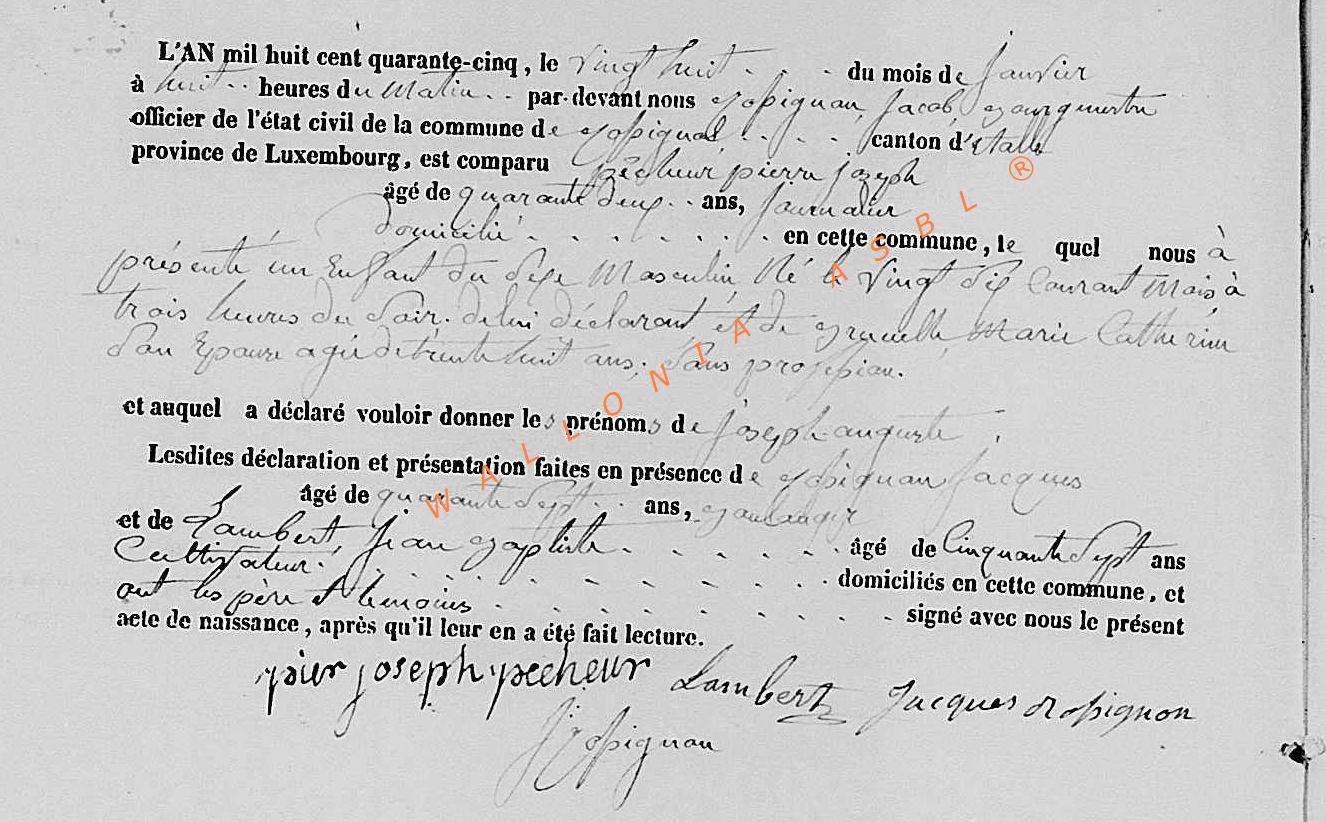 L'AN mil huit cent quarante-cinq, le vingt huit . . . du mois de Janvier
à huit . . heures du Matin . . par-devant nous Rossignon, Jacob, Bourguemtre
officier de l'état civil de la commune de Rossignol . . . . canton d'Etalle
province de Luxembourg, est comparu pêcheur pierre joseph
âgé de quarante deux . . ans, Journalier
domicilié . . . . . . . en cette commune, le quel nous à
présenté un Enfant du Sexe Masculin, Né le Vingt Six Courant Mois à
trois heures du Soir. de lui déclarant, et de Marie Catherine
Son Epouse agée de trente huit ans, Sans profession.
et auquel a déclaré vouloir donner les prénoms de joseph auguste .
Lesdites déclaration et présentation faites en présence de Rossignon Jacques
âgé de quarante Sept . . ans, Boulanger
et de Lambert, Jean Baptiste . . . . . . âgé de Cinquante Sept ans
Cultivateur. . . . . . . . . . . domiciliés en cette commune, et
ont les père et temoins . . . . . . . . signé avec nous le présent
acte de naissance, après qu'il leur en a été fait lecture.
pier joseph pecheur Lambert Jacques rossignon
J Rossignon
WALLONIA ASBL ®